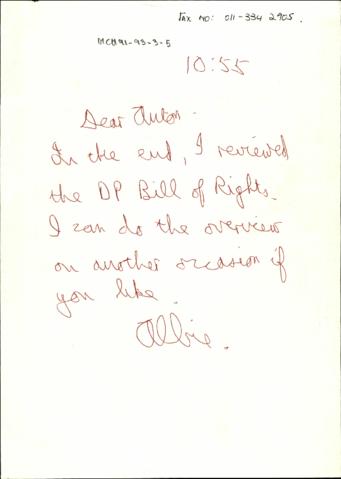 FAX NO: 011-334 2905.
MCH91-93-3-5
10:55
Dear Anton.
In the end, I reviewed
the DP Bill of Rights.
I can do the overview
on another occasion if
you like.
Albie.